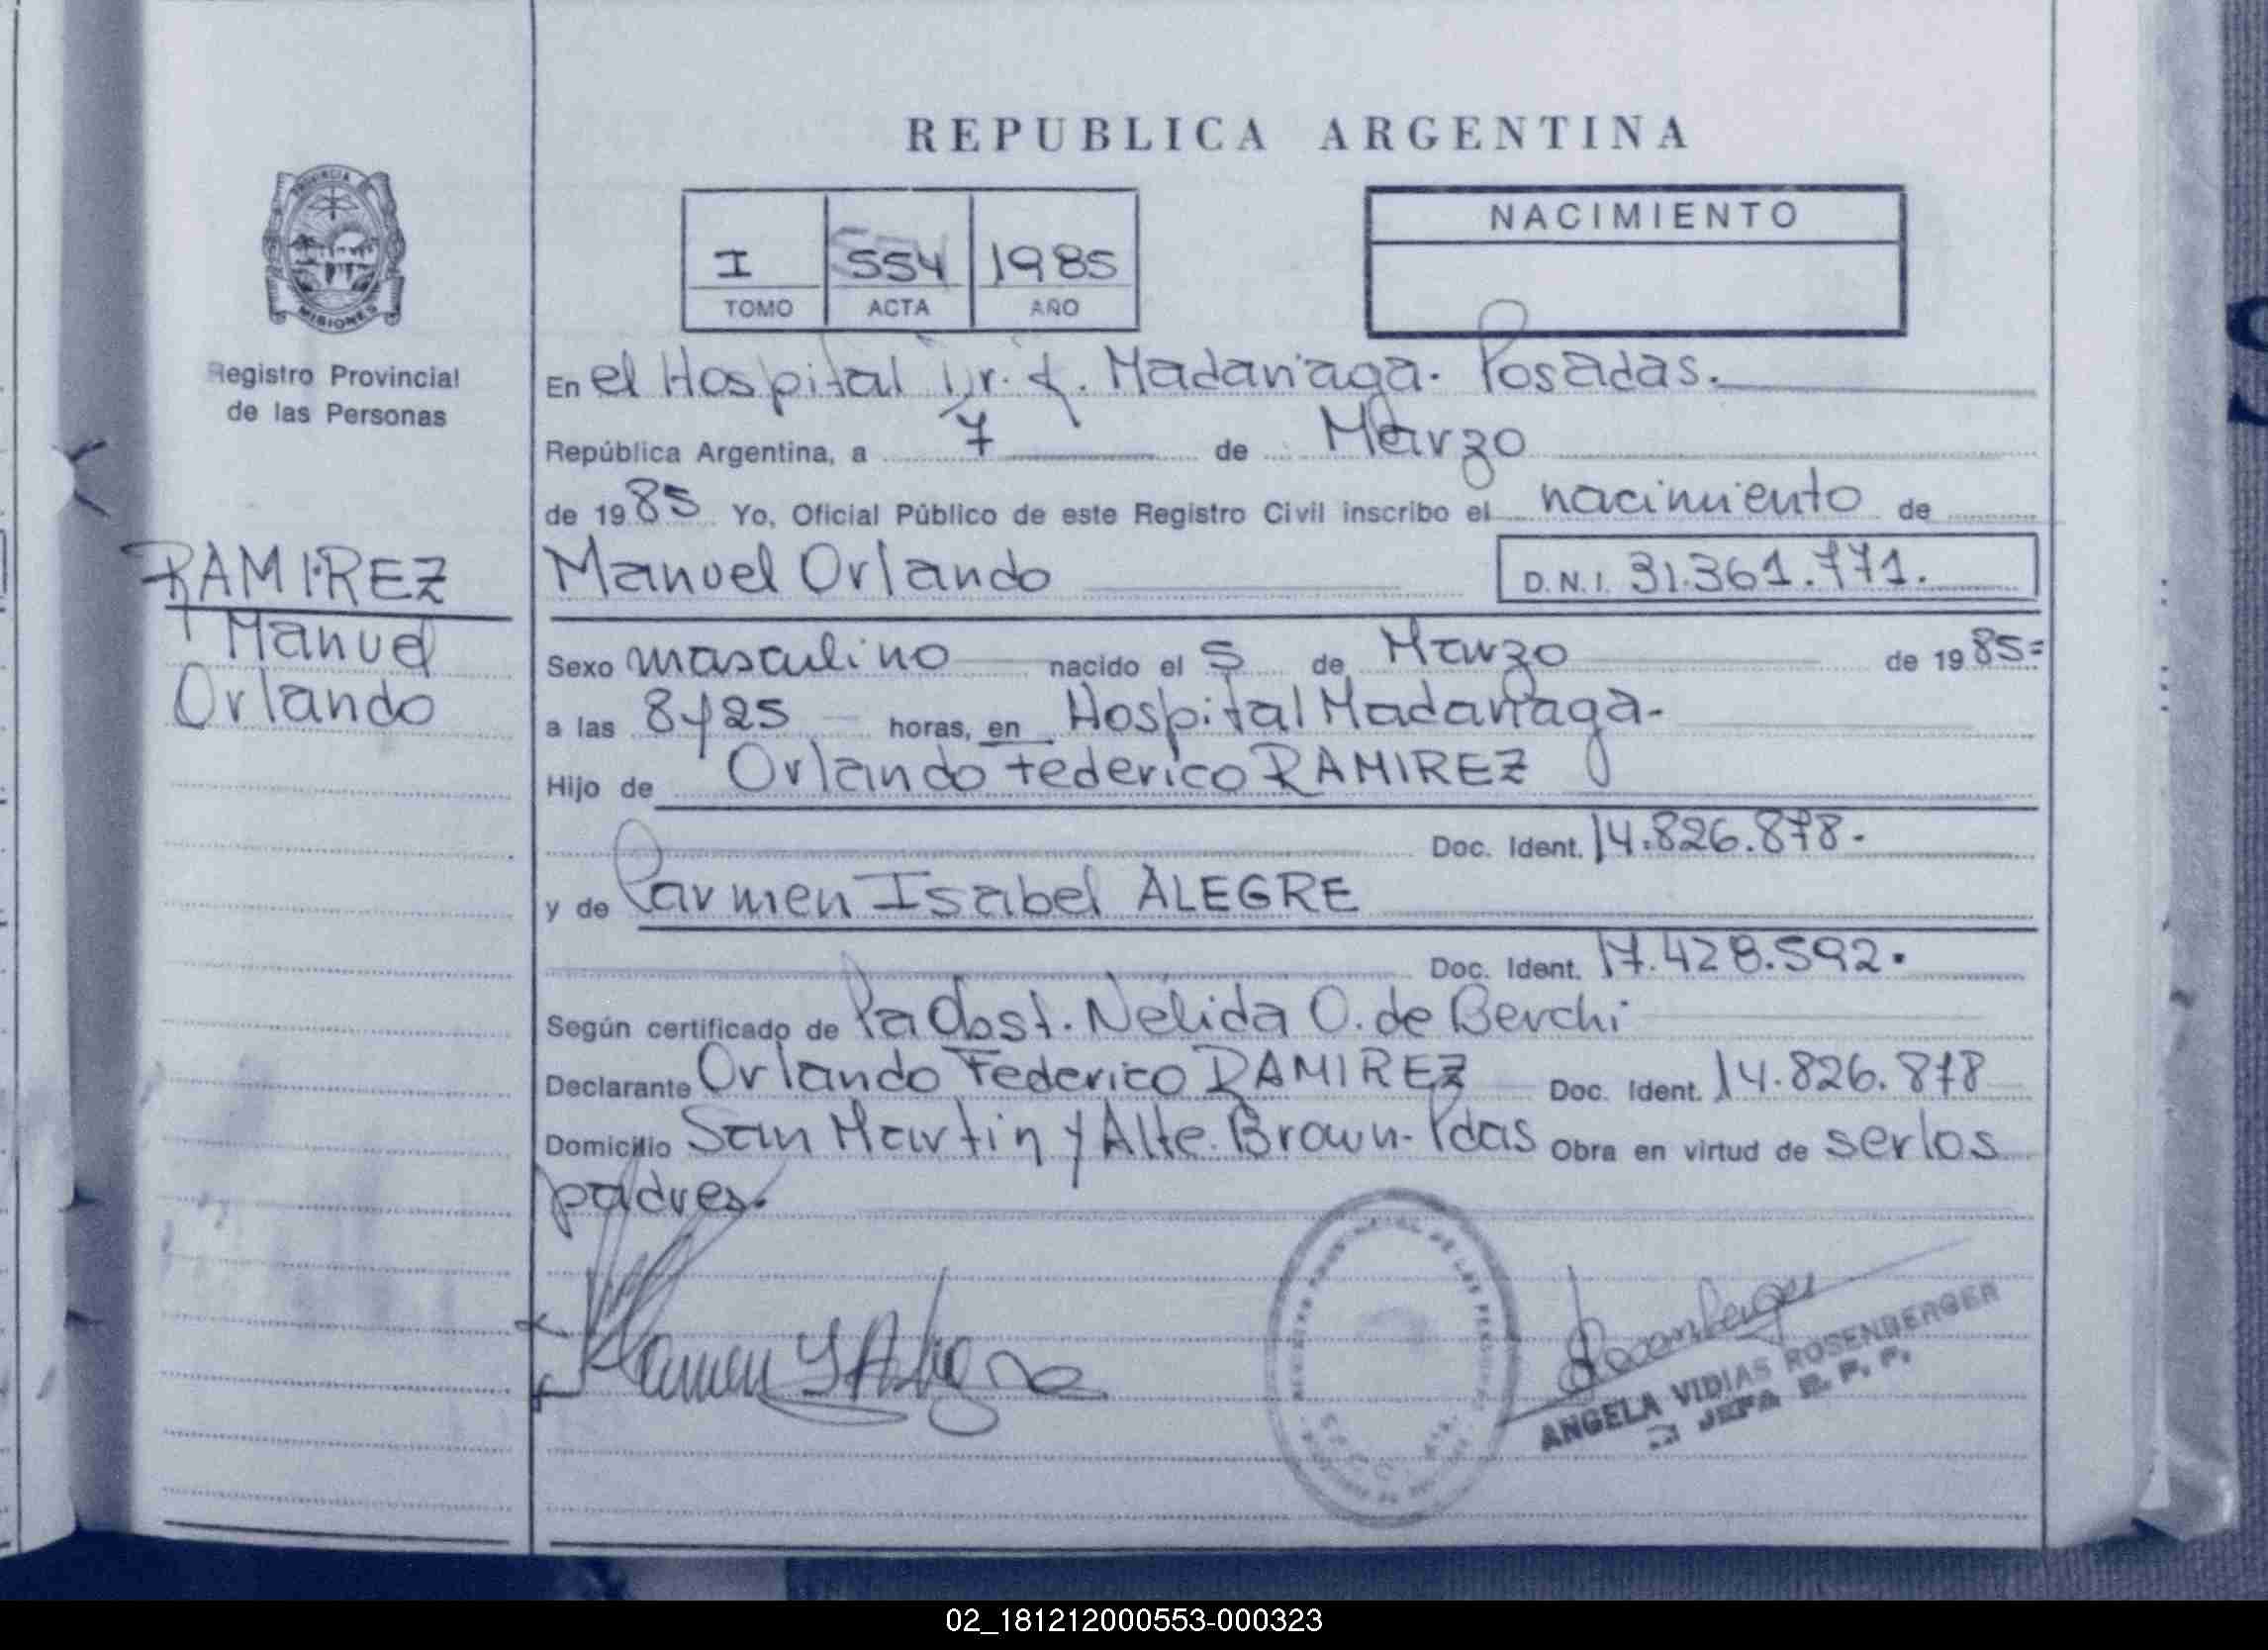 REPUBLICA ARGENTINA
PROVINCIA
MISIONES
Registro Provincial
de las Personas
I 554 1985
TOMO ACTA AÑO
NACIMIENTO
En el Hospital Dr. R. Madariaga. Posadas.
República Argentina, a 7 de Marzo
de 1985 Yo, Oficial Público de este Registro Civil inscribo el nacimiento de
RAMIREZ
Manuel
Orlando
Manuel Orlando D.N.I. 31.361.771.
Sexo masculino nacido el 5 de Marzo de 1985=
a las 8y25 horas, en Hospital Madariaga-
Hijo de Orlando Federico RAMIREZ
Doc. Ident. 14.826.878.
y de Carmen Isabel ALEGRE
Doc. Ident. 17.428.592.
Según certificado de la Obst. Nélida O. de Berchi
Declarante Orlando Federico RAMIREZ Doc. Ident. 14.826.878
Domicilio San Martin y Alte. Brown- Pdas Obra en virtud de ser los
padres.
ANGELA VIDIAS ROSENBERGER
JEFA R. P. P.
02_181212000553-000323